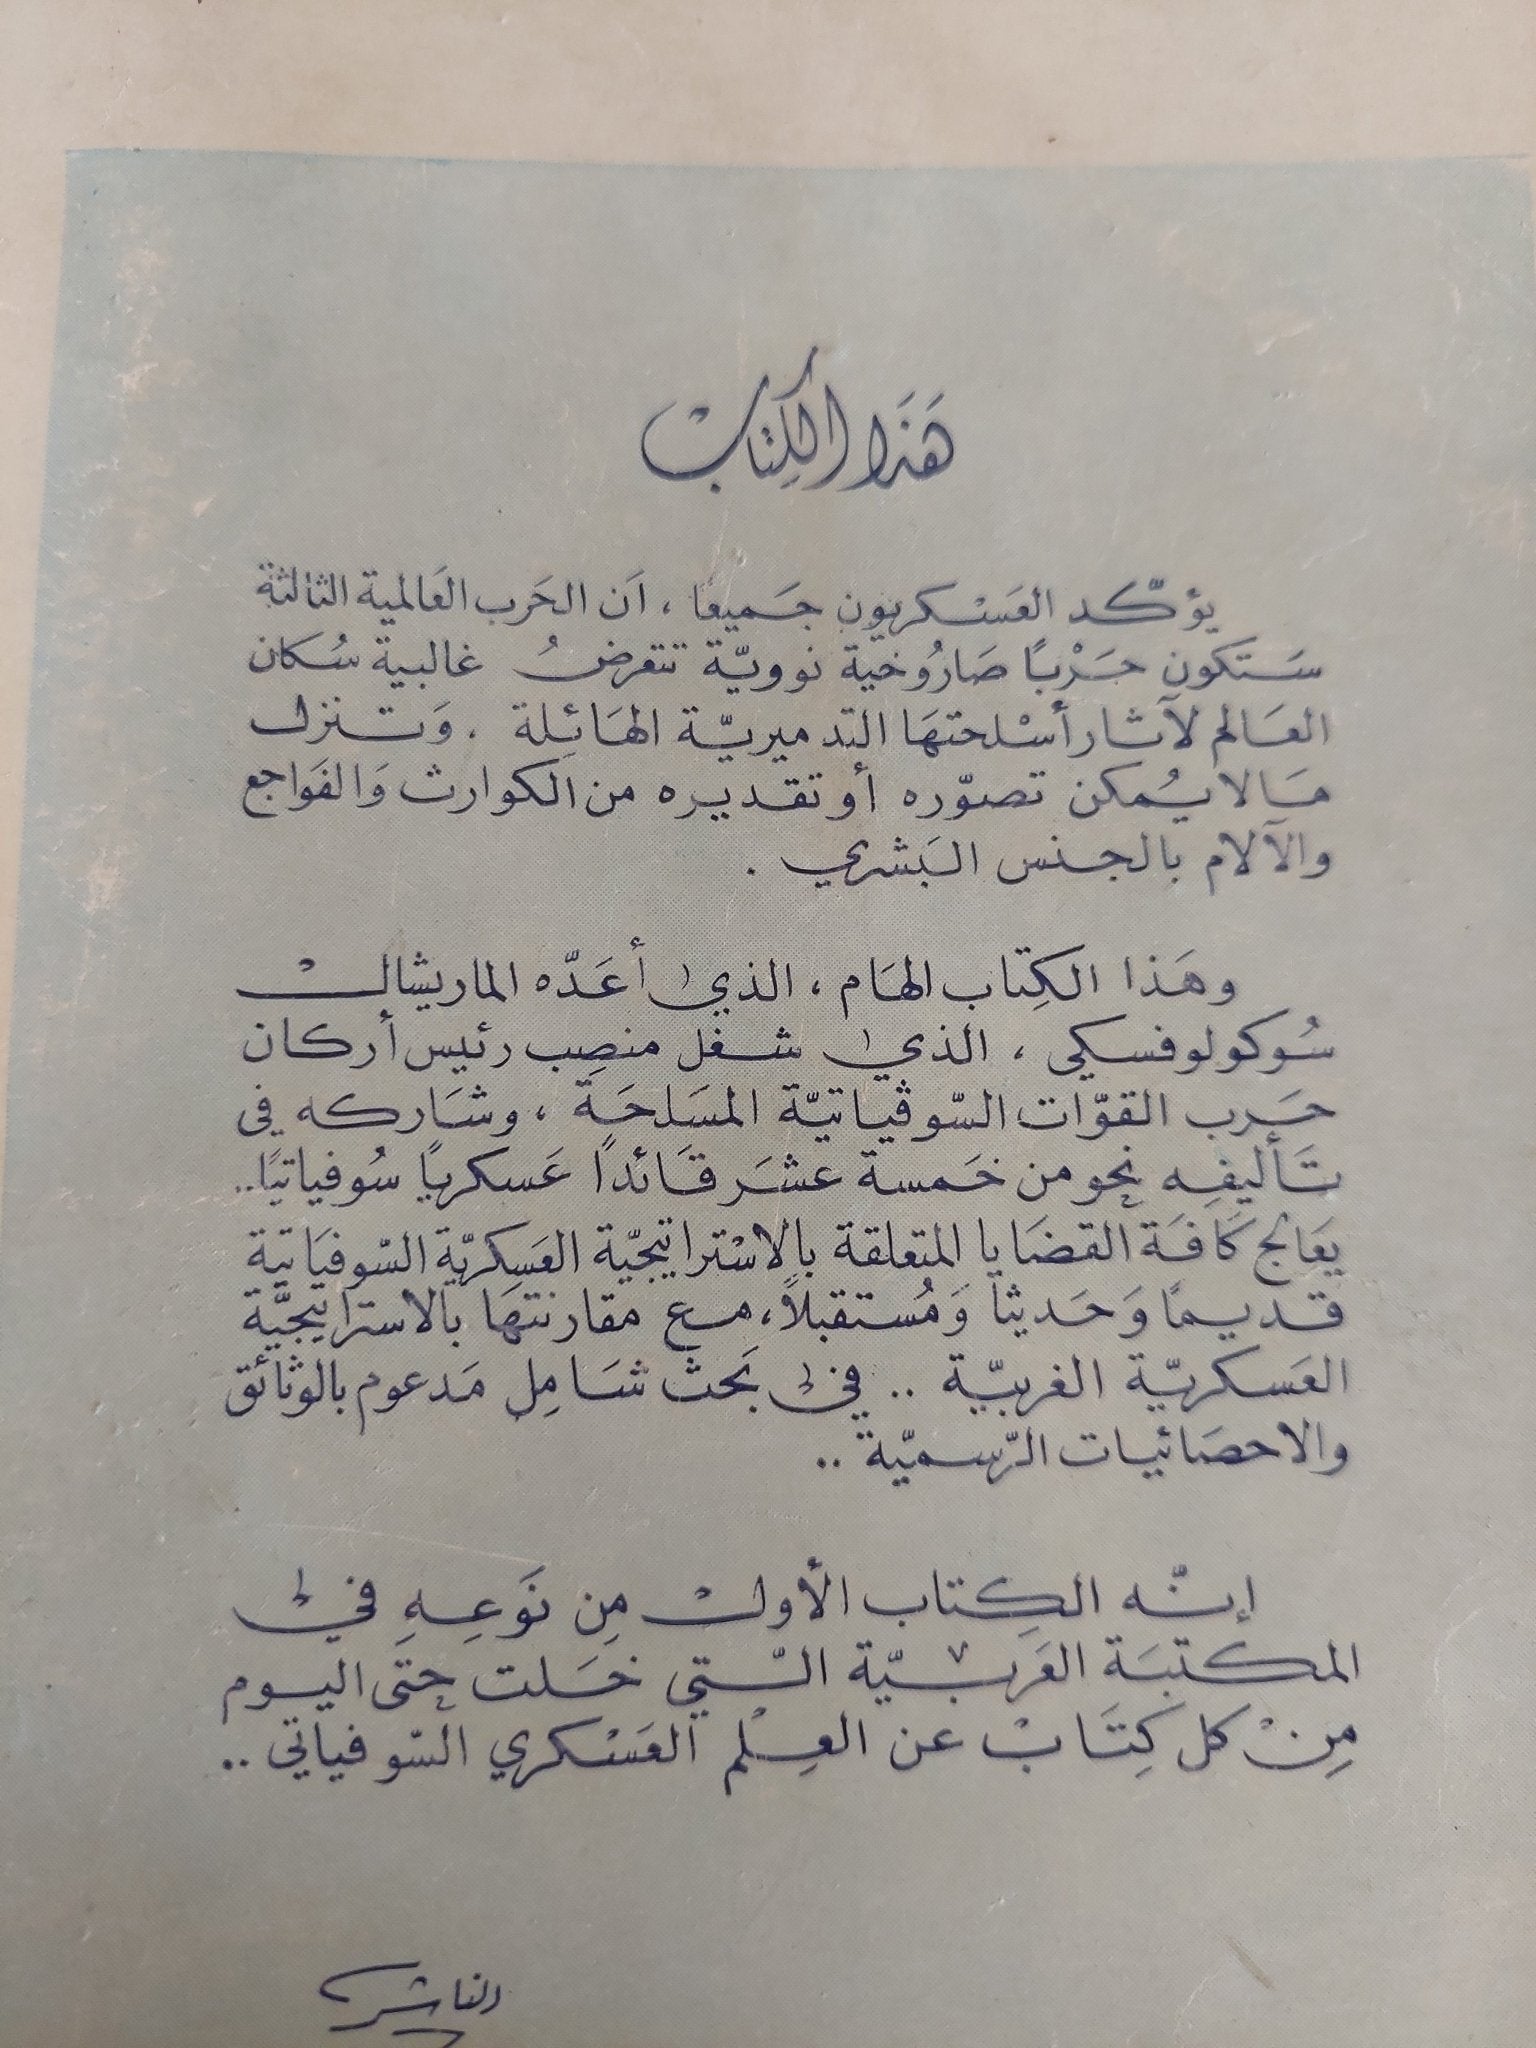 هَذَا الكِتابْ
يؤكّد العَسْكريون جَميعا ، اَن الحَرب العَالمية الثالثة
سَتَكون حَرْبًا صَارُوخية نوويّة تتعرضُ غالبية سُكان
العَالم لآثار أسْلحتهَا التدميريّة الهَائِلة . وَتنزل
مَالا يُمكن تصوّره أو تقديره من الكوارث وَالفَواجع
والآلام بالجنس البَشري .
وهَذا الكِتاب الهَام ، الذي أعَدّه الماريشالْ
سُوكولوفسكي ، الذي شغل منصِب رئيس أركان
حَرب القوّات السّوڤياتيّة المسَلحَة ، وشَاركه في
تَأليفِه نحو من خَمسة عشَر قَائدًا عَسكريًا سُوفياتيًا..
يعَالج كَافَة القضَايا المتعلقة بالاسْتراتيجيّة العَسِكريّة السّوفيَاتية
قديمًا وَحَديثا وَمُستقبلاً، مع مقارنتهَا بالاستراتيجيَّة
العَسكريّة الغربيّة .. في بَحث شَامِل مَدعوم بالوثائق
والاحصَائيات الرّسميّة ..
إنّه الكِتاب الأولْ مِن نَوعِهِ في
المكتبَة العَربيّة الّتي خَلت حتى اليوم
مِنْ كل كِتَابْ عن العِلْم العَسْكري السّوفياتي ..
الناشر